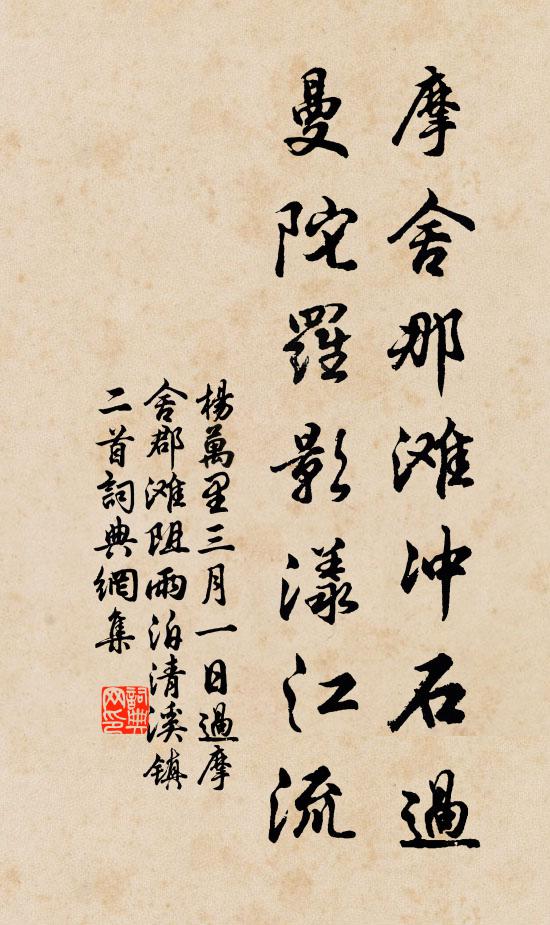 摩舍那滩冲石過
曼陀羅影漾江流
楊萬里三月一日過摩
舍郡滩阻雨泊清溪镇
二首詞典網集
詞典网印